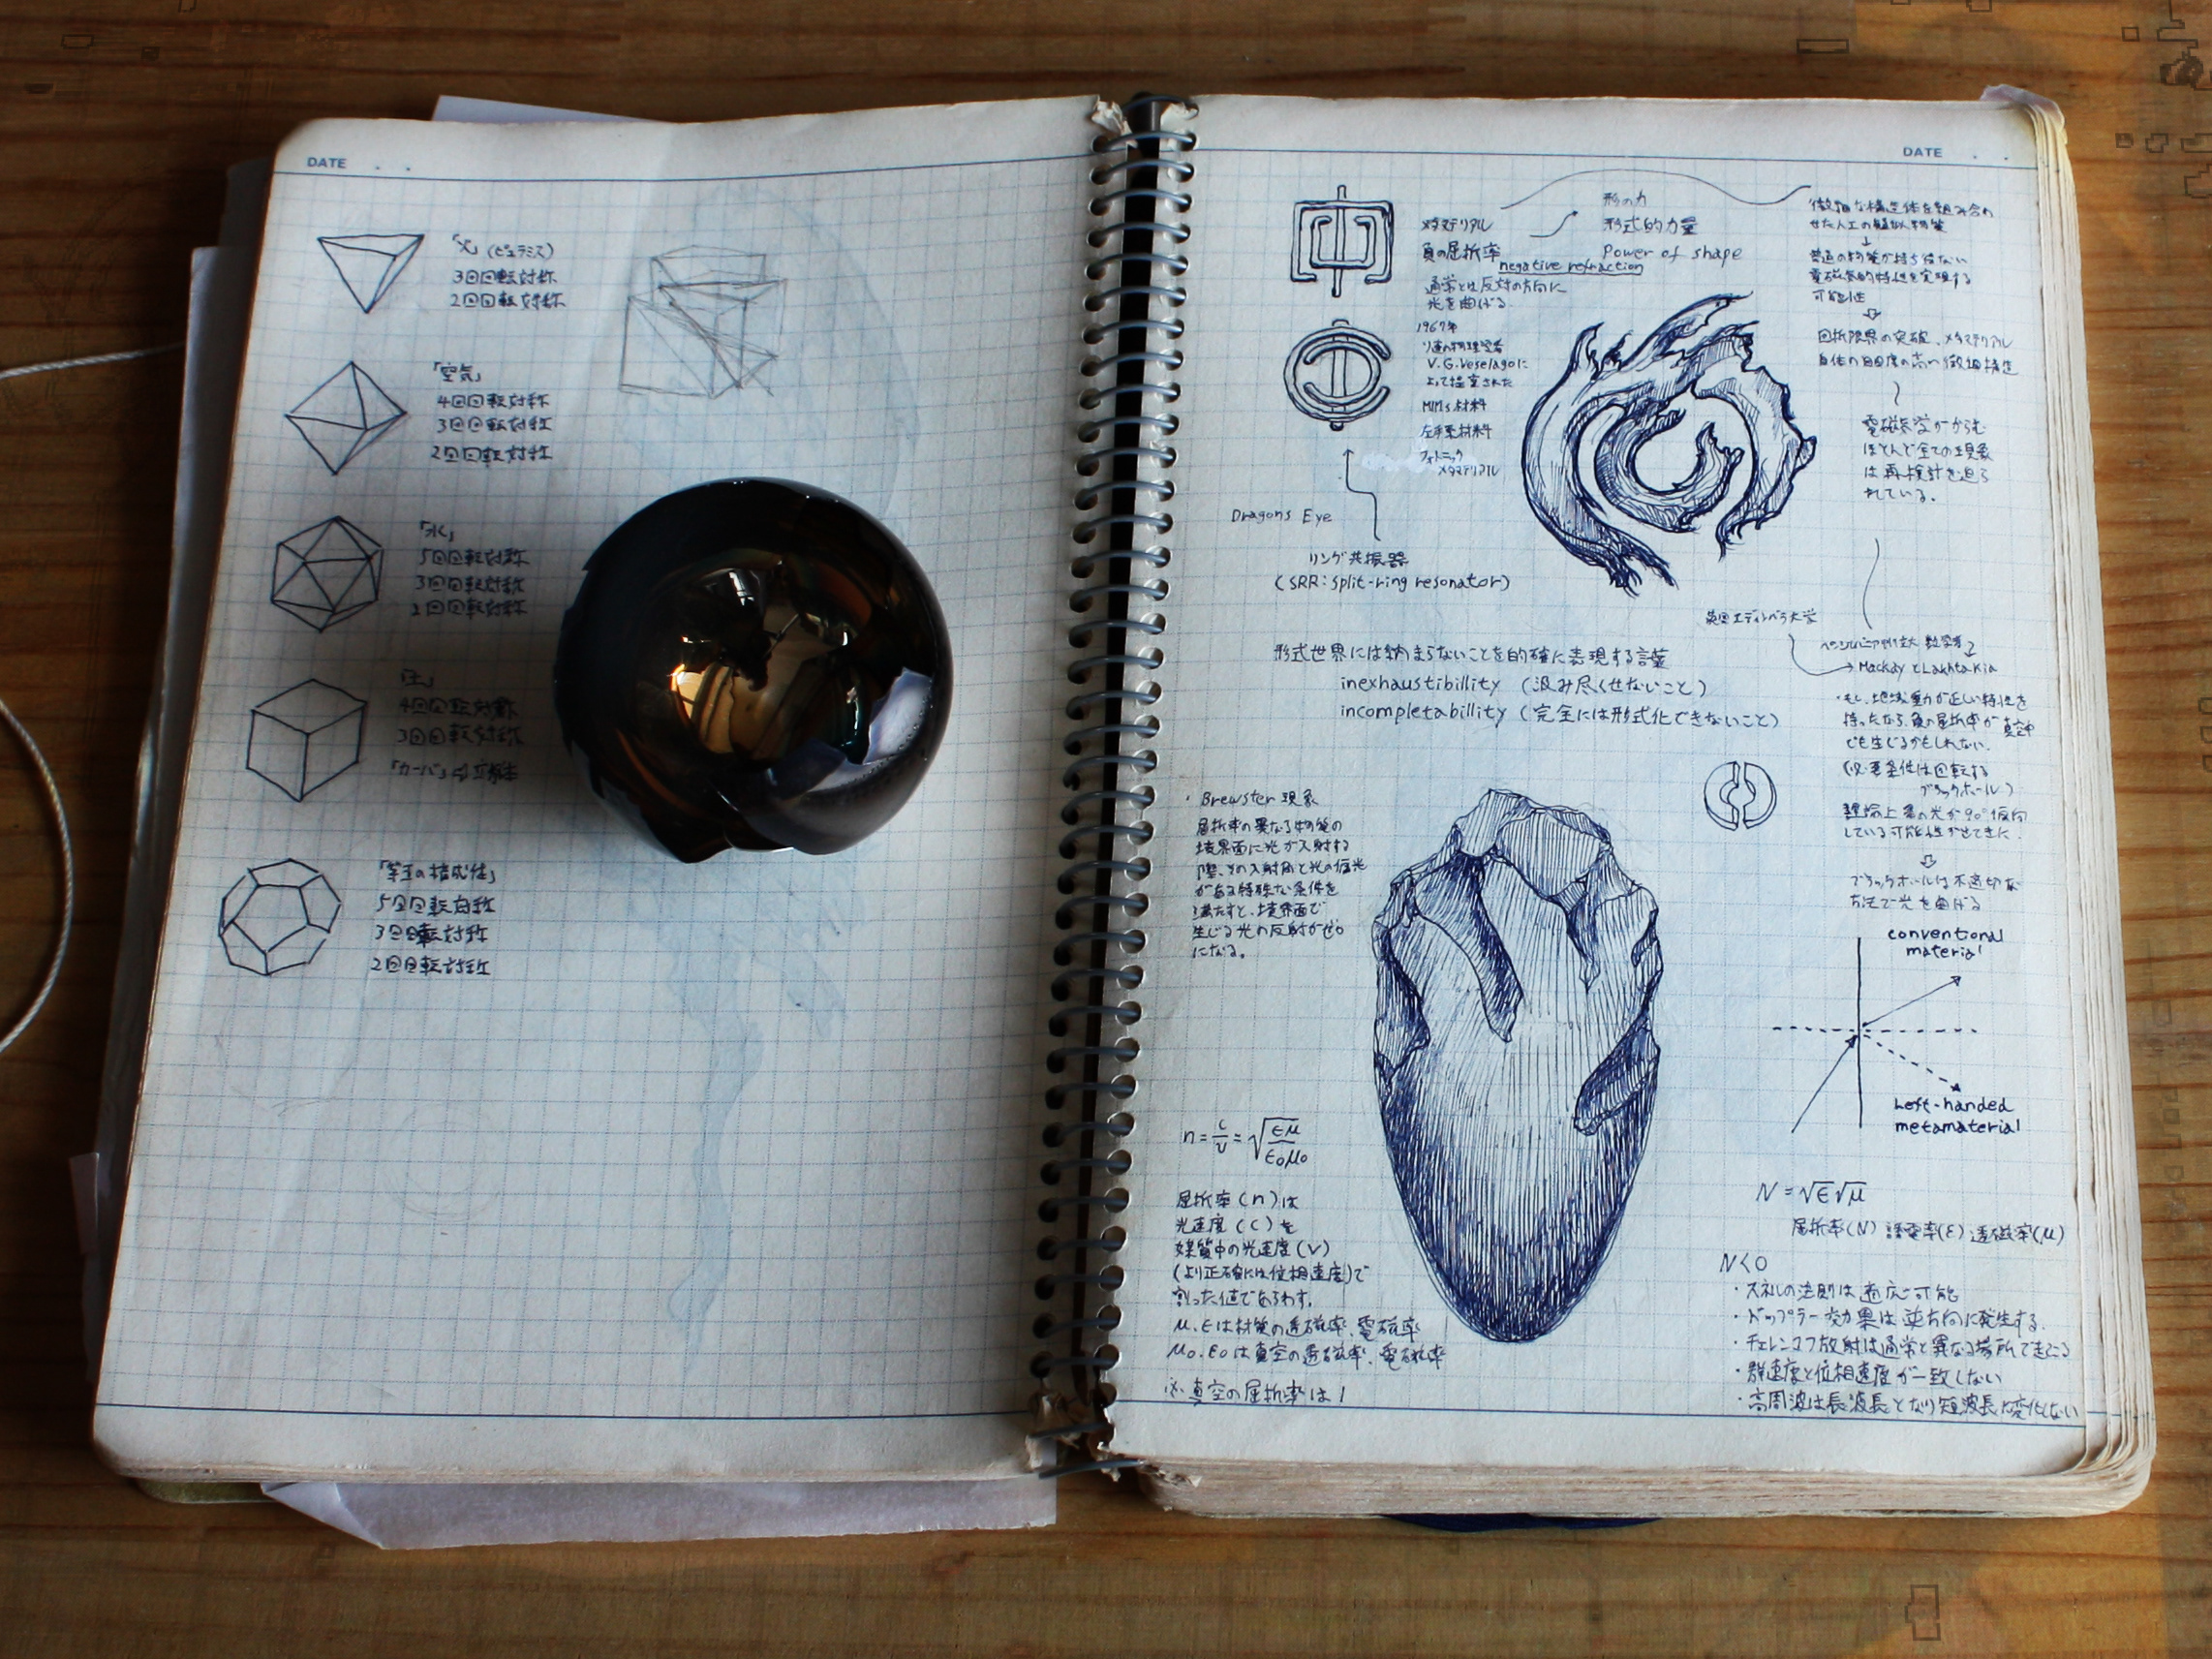 DATE . .
「火」(ピュラミス)
3回回転対称
2回回転対称
「空気」
4回回転対称
3回回転対称
2回回転対称
「水」
5回回転対称
3回回転対称
2回回転対称
「土」
4回回転対称
3回回転対称
「宇宙の構成性」
5回回転対称
3回回転対称
2回回転対称
DATE . .
メタマテリアル
負の屈折率
negative refraction
通常とは反対の方向に
光を曲げる
1967年
V.G.Veselagoに
よって提案された
左手系材料
フォトニック
メタマテリアル
形の力
形式的力量
Power of shape
微細な構造体を組み合わ
せた人工の疑似物質
↓
普通の物質が持ち得ない
電磁気的特性を実現する
可能性
⇩
回折限界の突破、メタマテリアル
自体の自由度の高い微細構造
電磁気学がからむ
ほとんど全ての現象
は再検討を迫ら
れている。
Dragons Eye
リング共振器
(SRR: Split-ring resonator)
英国エディンバラ大学
ペンシルバニア州立大 数学者
Mackay とLakhtakia
形式世界には納まらないことを的確に表現する言葉
inexhaustibillity (汲み尽くせないこと)
incompletabillity (完全には形式化できないこと)
・もし、地域重力が正しい特性を
持ったなら、負の屈折率が真空中
でも生じるかもしれない。
(必要条件は回転する
ブラックホール)
理論上 星の光が90°仮向
している可能性がでてきた。
⇩
ブラックホールは不適切な
方法で光を曲げる
・Brewster現象
屈折率の異なる物質の
境界面に光が入射する
際、その入射角と光の偏光
がある特殊な条件を
満たすと、境界面で
生じる光の反射がゼロ
になる。
conventional
material
Left-handed
metamaterial
n = c/v = √(εμ/ε₀μ₀)
屈折率(n)は
光速度(c)を
媒質中の光速度(v)
(より正確には位相速度)で
割った値であらわす。
μ.εは材質の透磁率、電磁率
μ₀.ε₀は真空の透磁率、電磁率
※真空の屈折率は1
N = √ε√μ
屈折率(N) 誘電率(ε) 透磁率(μ)
N<0
・スネルの法則は適応可能
・ドップラー効果は逆方向に発生する.
・チェレンコフ放射は通常と異なる場所で起こる
・群速度と位相速度が一致しない
・高周波は長波長となり短波長に変化しない